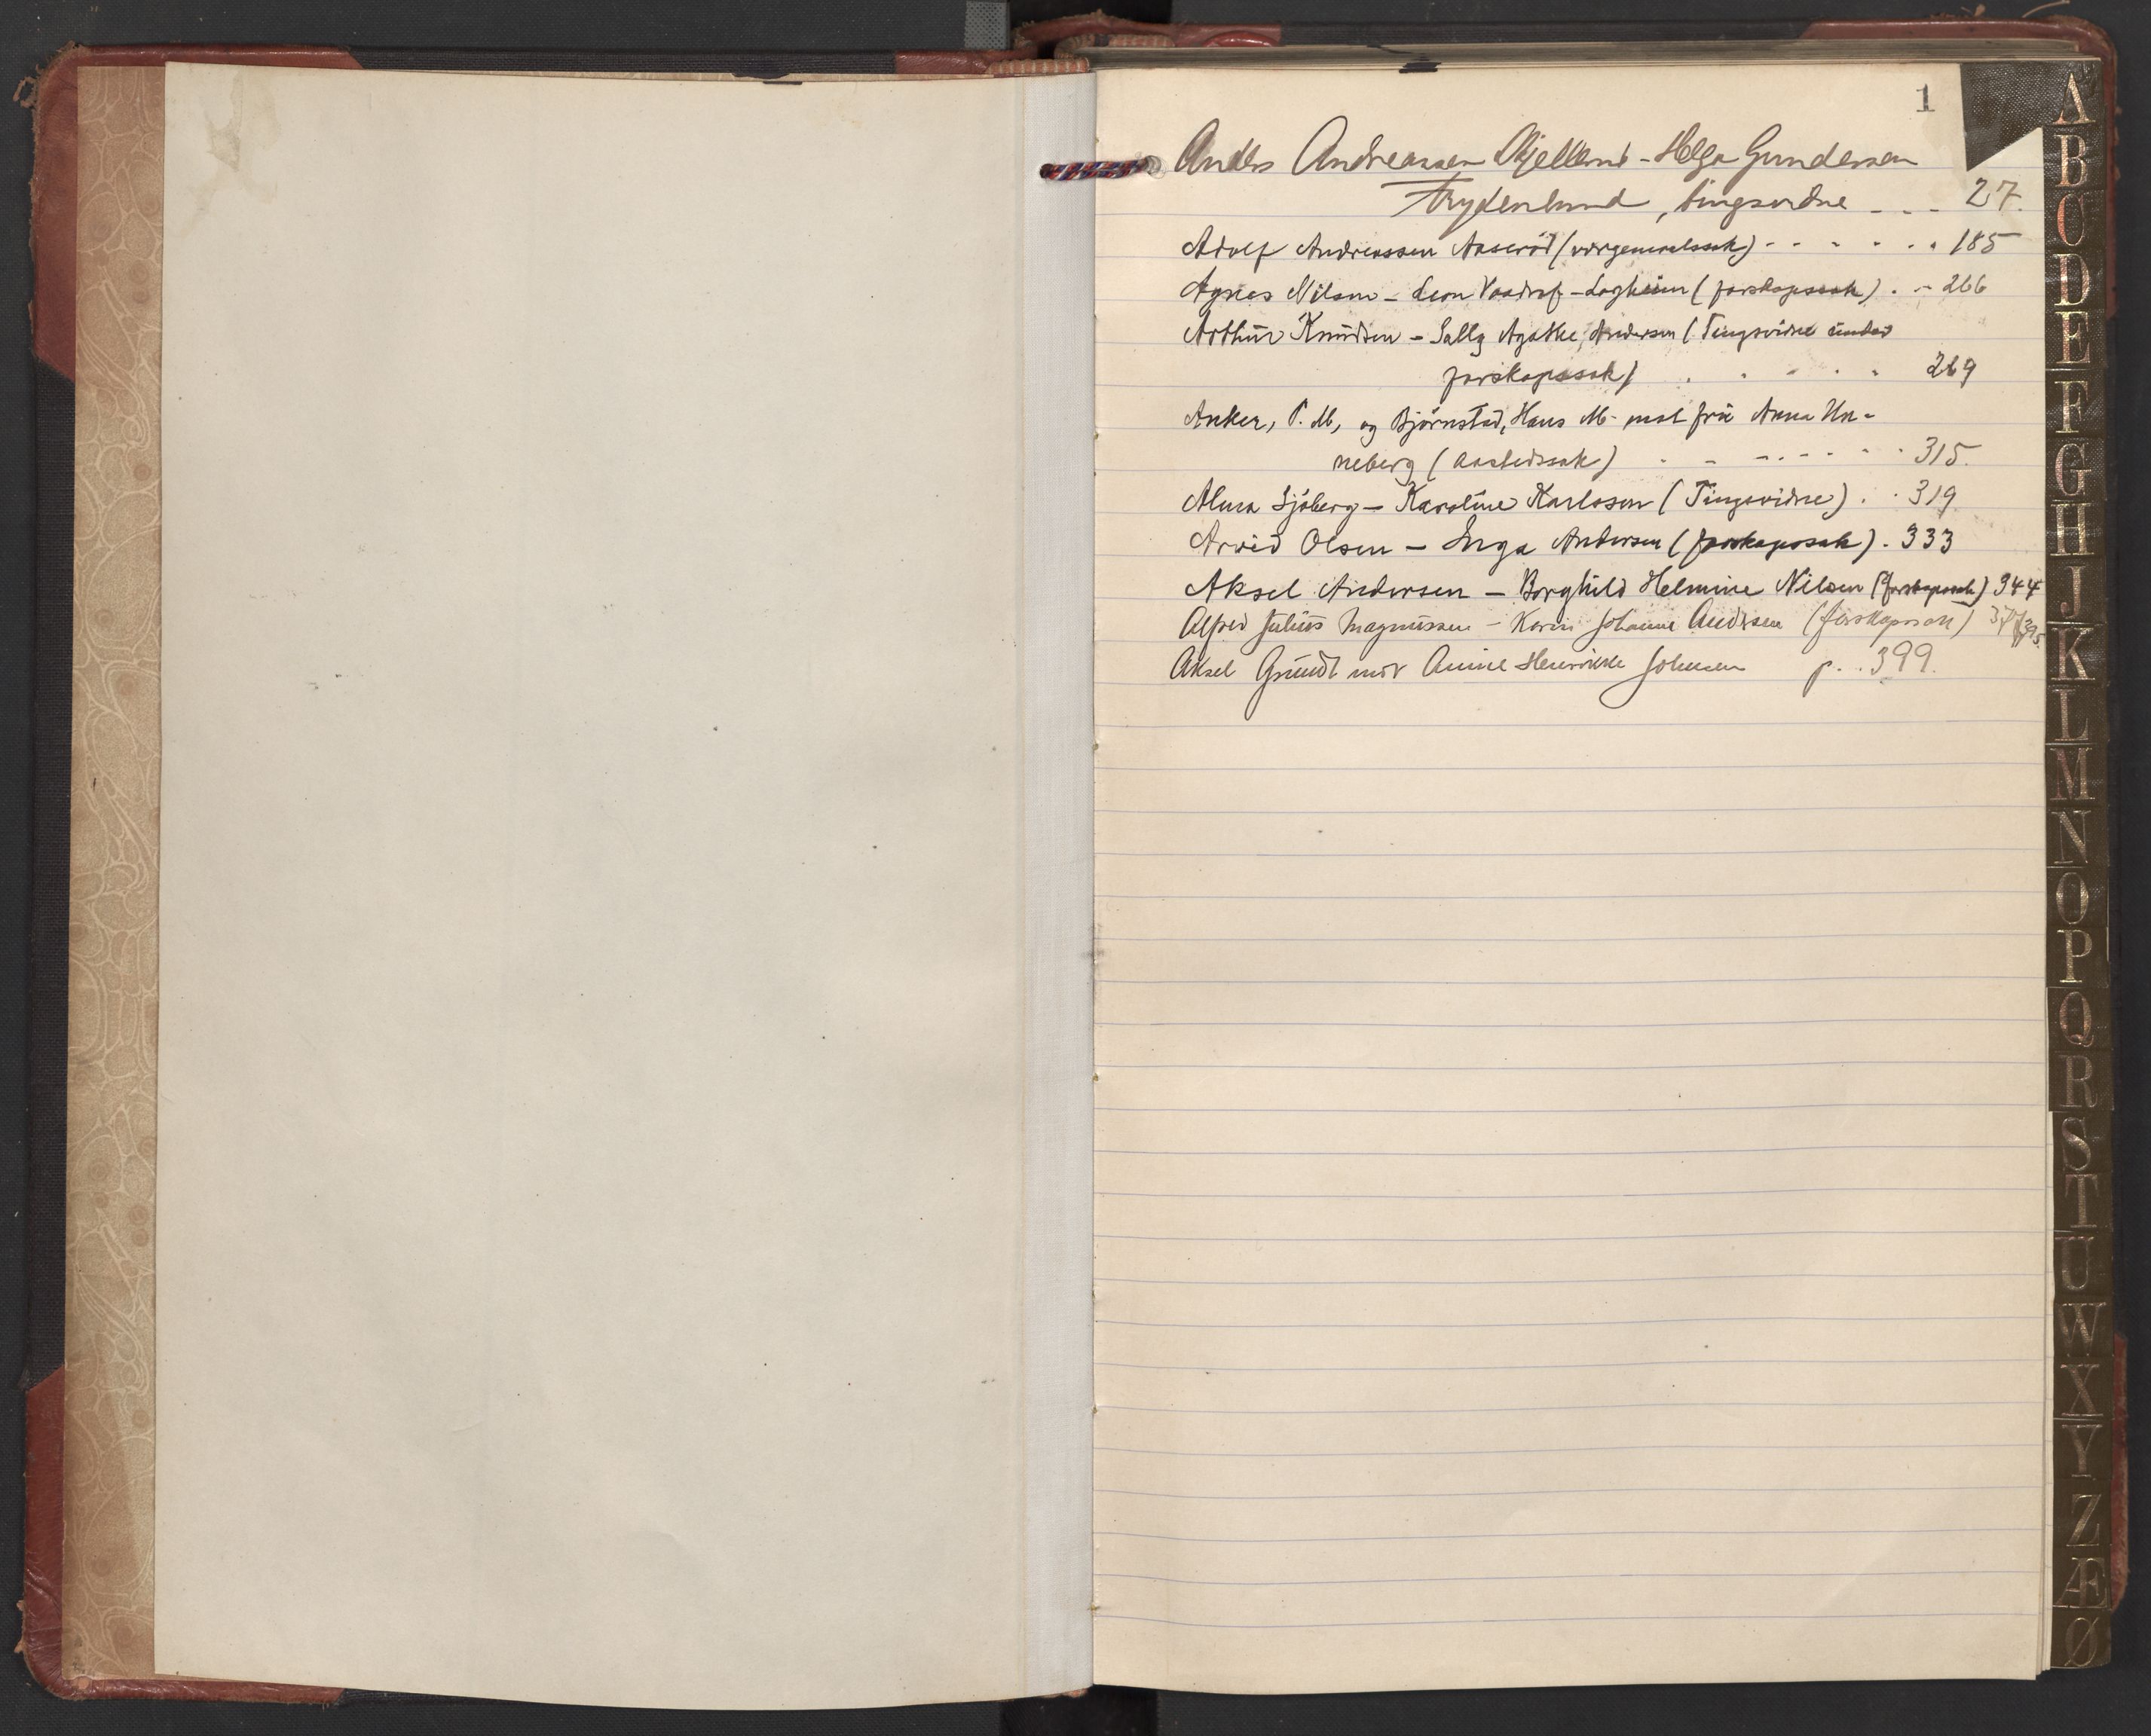 1
Anders Andreassen Kjellerud - Helga Gundersen
Frydenlund, tingsvidne - - - 27.
Adolf Andreassen Aaserød (vergemaalssak) - - - - - - 185
Agnes Nilsen - Leon - Lagheim (farskapssak) . - 266
Arthur Knudsen - Sally Agathe Andersen (Tingsvidne under
farskapssak) . . . . . 269
Anker, P. M, og Bjørnstad, Hans M. mot fru Anna Un-
neberg (aastedssak) - - - - - - - 315.
Alma Sjøberg - Karoline Karlsson (Tingsvidne) . . 319
Arvid Olsen - Inga Andersen (farskapssak) . 333
Aksel Andersen - Borghild Helmine Nilsen (farskapssak) 344
Alfred Julius Magnussen - Karin Johanne Andersen (farskapssak)
Aksel Grundt mot Annie Henrikke Johnsen p. . 399.
A
B
C
D
E
F
G
H
J
K
L
M
N
O
P
Q
R
S
T
U
W
X
Y
Z
Æ
Ø